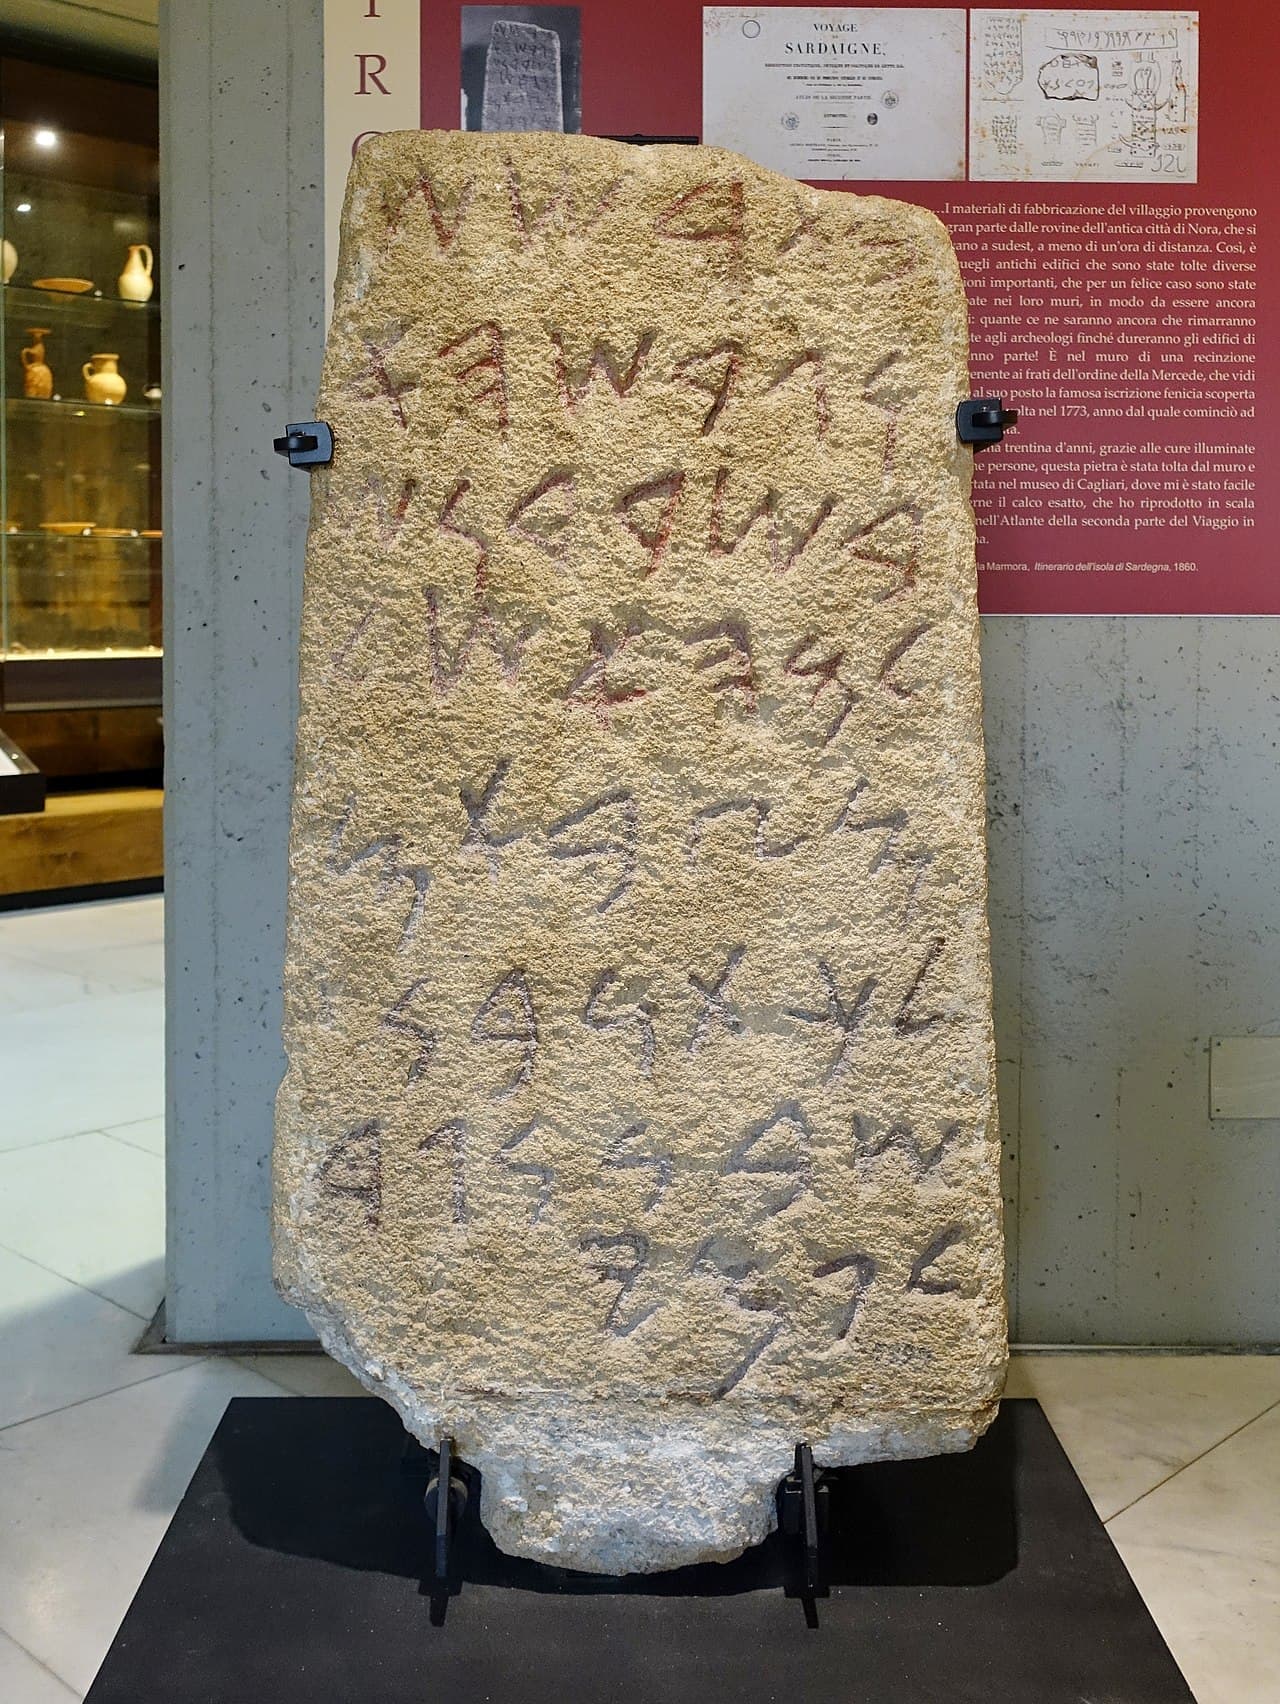 𐤁𐤕𐤓𐤔𐤔
𐤅𐤂𐤓𐤔𐤄𐤀
𐤁𐤔𐤓𐤃𐤍𐤔
𐤋𐤌𐤄𐤀𐤔𐤋
𐤌𐤑𐤁𐤀𐤌
𐤋𐤊𐤕𐤍𐤁𐤍
𐤔𐤁𐤍𐤍𐤂𐤓
𐤋𐤐𐤌𐤉
VOYAGE
SARDAIGNE,
...I materiali di fabbricazione del villaggio provengono
gran parte dalle rovine dell'antica città di Nora, che si
a sudest, a meno di un'ora di distanza. Così, è
antichi edifici che sono state tolte diverse
importanti, che per un felice caso sono state
nei loro muri, in modo da essere ancora
quante ce ne saranno ancora che rimarranno
agli archeologi finché dureranno gli edifici di
parte! È nel muro di una recinzione
ai frati dell'ordine della Mercede, che vidi
al suo posto la famosa iscrizione fenicia scoperta
nel 1773, anno dal quale cominciò ad
trentina d'anni, grazie alle cure illuminate
persone, questa pietra è stata tolta dal muro e
nel museo di Cagliari, dove mi è stato facile
il calco esatto, che ho riprodotto in scala
nell'Atlante della seconda parte del Viaggio in
Marmora, Itinerario dell'isola di Sardegna, 1860.